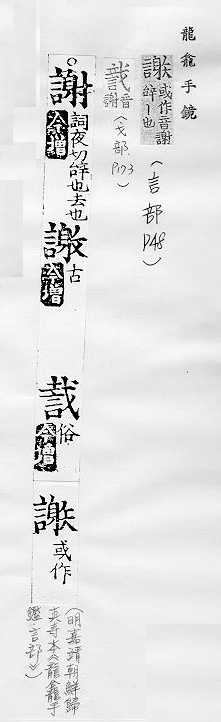 龍龕手鏡
或作音謝
辝丨也
(言部
P48)
音
謝
(戈部
P173)
謝 詞夜切辝也去也
今增
古
今增
俗
今增
或作
(明嘉靖朝鮮歸
真寺本《龍龕手
鑑·言部》)